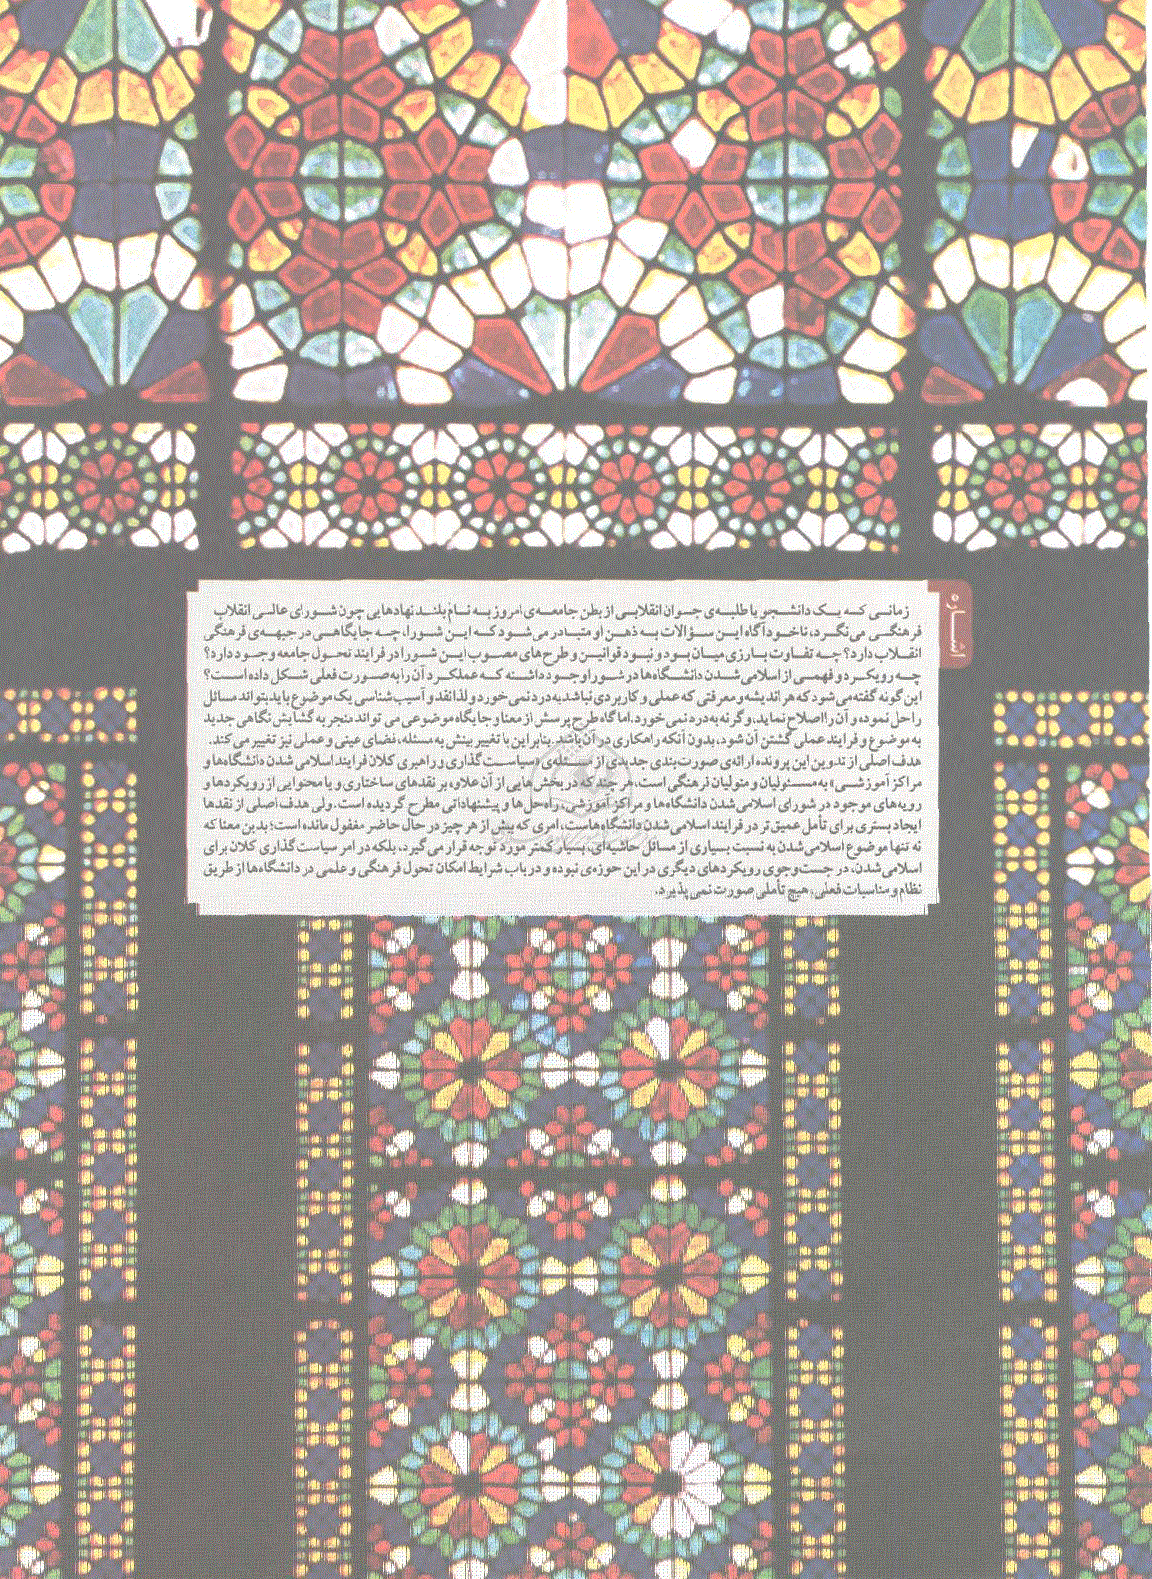 اشاره
زمانی که یک دانشجو یا طلبه‌ی جوان انقلابی از بطن جامعه‌ی امروز به نام بلند نهادهایی چون شورای عالی انقلاب
فرهنگی می‌نگرد، ناخودآگاه این سؤالات به ذهن او متبادر می‌شود که این شورا، چه جایگاهی در جبهه‌ی فرهنگی
انقلاب دارد؟ چه تفاوت بارزی میان بود و نبود قوانین و طرح‌های مصوب این شورا در فرایند تحول جامعه وجود دارد؟
چه رویکرد و فهمی از اسلامی شدن دانشگاه‌ها در شورا وجود داشته که عملکرد آن را به صورت فعلی شکل داده است؟
این گونه گفته می‌شود که هر اندیشه و معرفتی که عملی و کاربردی نباشد به درد نمی‌خورد و لذا نقد و آسیب‌شناسی یک موضوع یا باید بتواند مسائل
را حل نموده و آن را اصلاح نماید، وگرنه به درد نمی‌خورد. اما گاه طرح پرسش از معنا و جایگاه موضوعی می‌تواند منجر به گشایش نگاهی جدید
به موضوع و فرایند عملی گشتن آن شود، بدون آنکه راهکاری در آن باشد. بنابراین با تغییر بینش به مسئله، فضای عینی و عملی نیز تغییر می‌کند.
هدف اصلی از تدوین این پرونده ارائه‌ی صورت‌بندی جدیدی از مسئله‌ی «سیاست‌گذاری و راهبری کلان فرایند اسلامی شدن دانشگاه‌ها و
مراکز آموزشی» به مسئولیان و متولیان فرهنگی است. هر چند که در بخش‌هایی از آن علاوه بر نقدهای ساختاری و یا محتوایی از رویکردها و
رویه‌های موجود در شورای اسلامی شدن دانشگاه‌ها و مراکز آموزشی، راه‌حل‌ها و پیشنهاداتی مطرح گردیده است. ولی هدف اصلی از نقدها
ایجاد بستری برای تأمل عمیق‌تر در فرایند اسلامی شدن دانشگاه‌هاست، امری که پیش از هر چیز در حال حاضر مغفول مانده است؛ بدین معنا که
نه تنها موضوع اسلامی شدن به نسبت بسیاری از مسائل حاشیه‌ای، بسیار کمتر مورد توجه قرار می‌گیرد، بلکه در امر سیاست‌گذاری کلان برای
اسلامی شدن، در جست‌وجوی رویکردهای دیگری در این حوزه‌ی نبوده و در باب شرایط امکان تحول فرهنگی و علمی در دانشگاه‌ها از طریق
نظام و مناسبات فعلی، هیچ تأملی صورت نمی‌پذیرد.